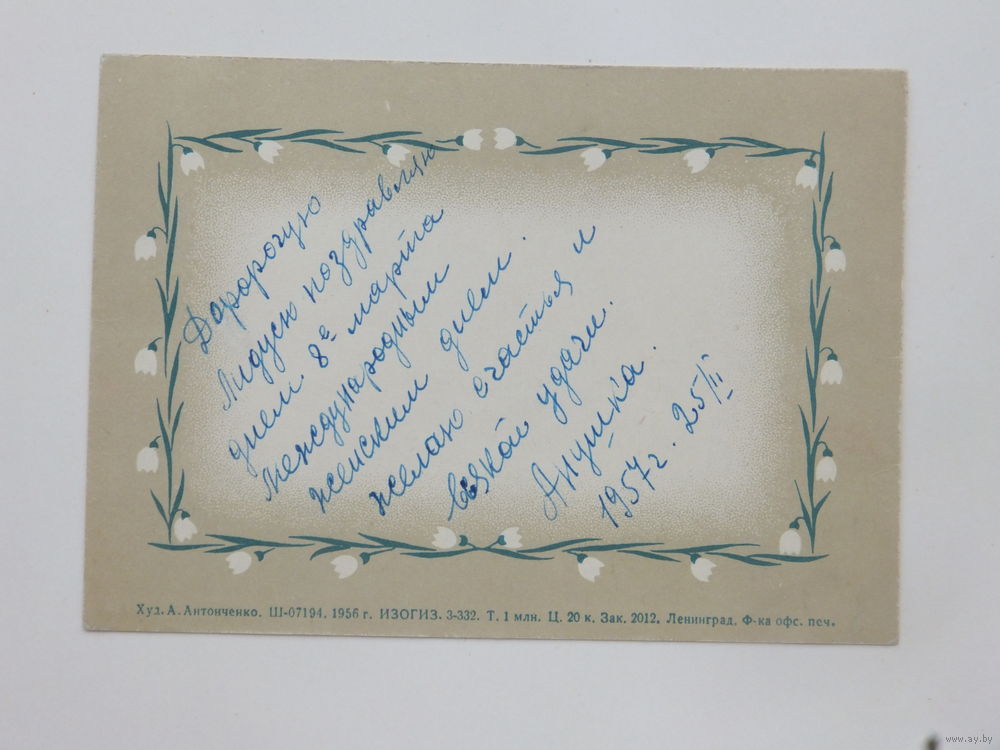 Дорогую
Лидусю поздравляю
днем 8е марта
международным
женским днем.
желаю счастья и
всякой удачи.
Анушка.
1957 г. 25/II
Худ. А. Антонченко. Ш-07194. 1956 г. ИЗОГИЗ. 3-332. Т. 1 млн. Ц. 20 к. Зак. 2012. Ленинград. Ф-ка офс. печ.
www.ay.by